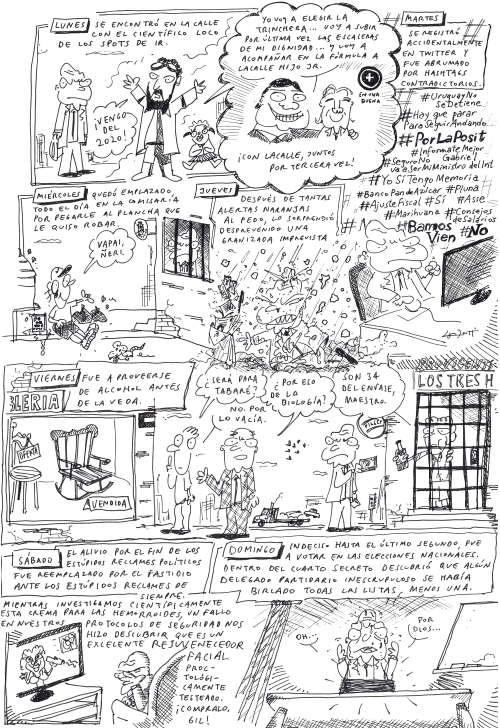 LUNES SE ENCONTRÓ EN LA CALLE
CON EL CIENTÍFICO LOCO
DE LOS SPOTS DE IR.
¡VENGO
DEL
2020!
YO VOY A ELEGIR LA
TRINCHERA... VOY A SUBIR
POR ÚLTIMA VEZ LAS ESCALERAS
DE MI DIGNIDAD... Y VOY A
ACOMPAÑAR EN LA FÓRMULA A
LACALLE HIJO JR.
+
EN UNA
BUENA
¡CON LACALLE, JUNTOS
POR TERCERA VEZ!
MARTES
SE REGISTRÓ
ACCIDENTALMENTE
EN TWITTER Y
FUE ABRUMADO
POR HASHTAGS
CONTRADICTORIOS.
#UruguayNo
seDetiene
#Hay que parar
ParaSeguirAndando
#PorLaPosit
#InformateMejor
#SeguroNo Gabriel!
#YoSíTengo Memoria
#BancoPandeAzúcar #Pluna
#AjusteFiscal #Sí #Asse
#Marihuana #Consejos
deSalarios
#Bamos
Vien #No
MIÉRCOLES QUEDÓ EMPLAZADO
TODO EL DÍA EN LA COMISARÍA
POR PEGARLE AL PLANCHA QUE
LE QUISO ROBAR.
VAPAI,
ÑERI.
JUEVES
DESPUÉS DE TANTAS
ALERTAS NARANJAS
AL PEDO, LO SORPRENDIÓ
DESPREVENIDO UNA
GRANIZADA IMPREVISTA
VIERNES FUE A PROVEERSE
DE ALCOHOL ANTES
DE LA VEDA.
BLERIA
OFERTA
VENDIDA
¿SERÁ PARA
TABARÉ?
NO. POR
LO VACÍA.
¿POR ESO
DE LA
BIOLOGÍA?
SON 34
DEL ENVASE,
MAESTRO.
LOS TRES H
SÁBADO EL ALIVIO POR EL FIN DE LOS
ESTÚPIDOS RECLAMES POLÍTICOS
FUE REEMPLAZADO POR EL FASTIDIO
ANTE LOS ESTÚPIDOS RECLAMES DE
SIEMPRE.
MIENTRAS INVESTIGAMOS CIENTÍFICAMENTE
ESTA CREMA PARA LAS HEMORROIDES, UN FALLO
EN NUESTROS PROTOCOLOS DE SEGURIDAD NOS
HIZO DESCUBRIR QUE ES UN
EXCELENTE REJUVENECEDOR
FACIAL
PROC-
TOLÓGI-
CAMENTE
TESTEADO.
¡COMPRALO,
GIL!
DOMINGO INDECISO HASTA EL ÚLTIMO SEGUNDO, FUE
A VOTAR EN LAS ELECCIONES NACIONALES.
DENTRO DEL CUARTO SECRETO DESCUBRIÓ QUE ALGÚN
DELEGADO PARTIDARIO INESCRUPULOSO SE HABÍA
BIRLADO TODAS LAS LISTAS, MENOS UNA.
OH...
POR
DIOS...